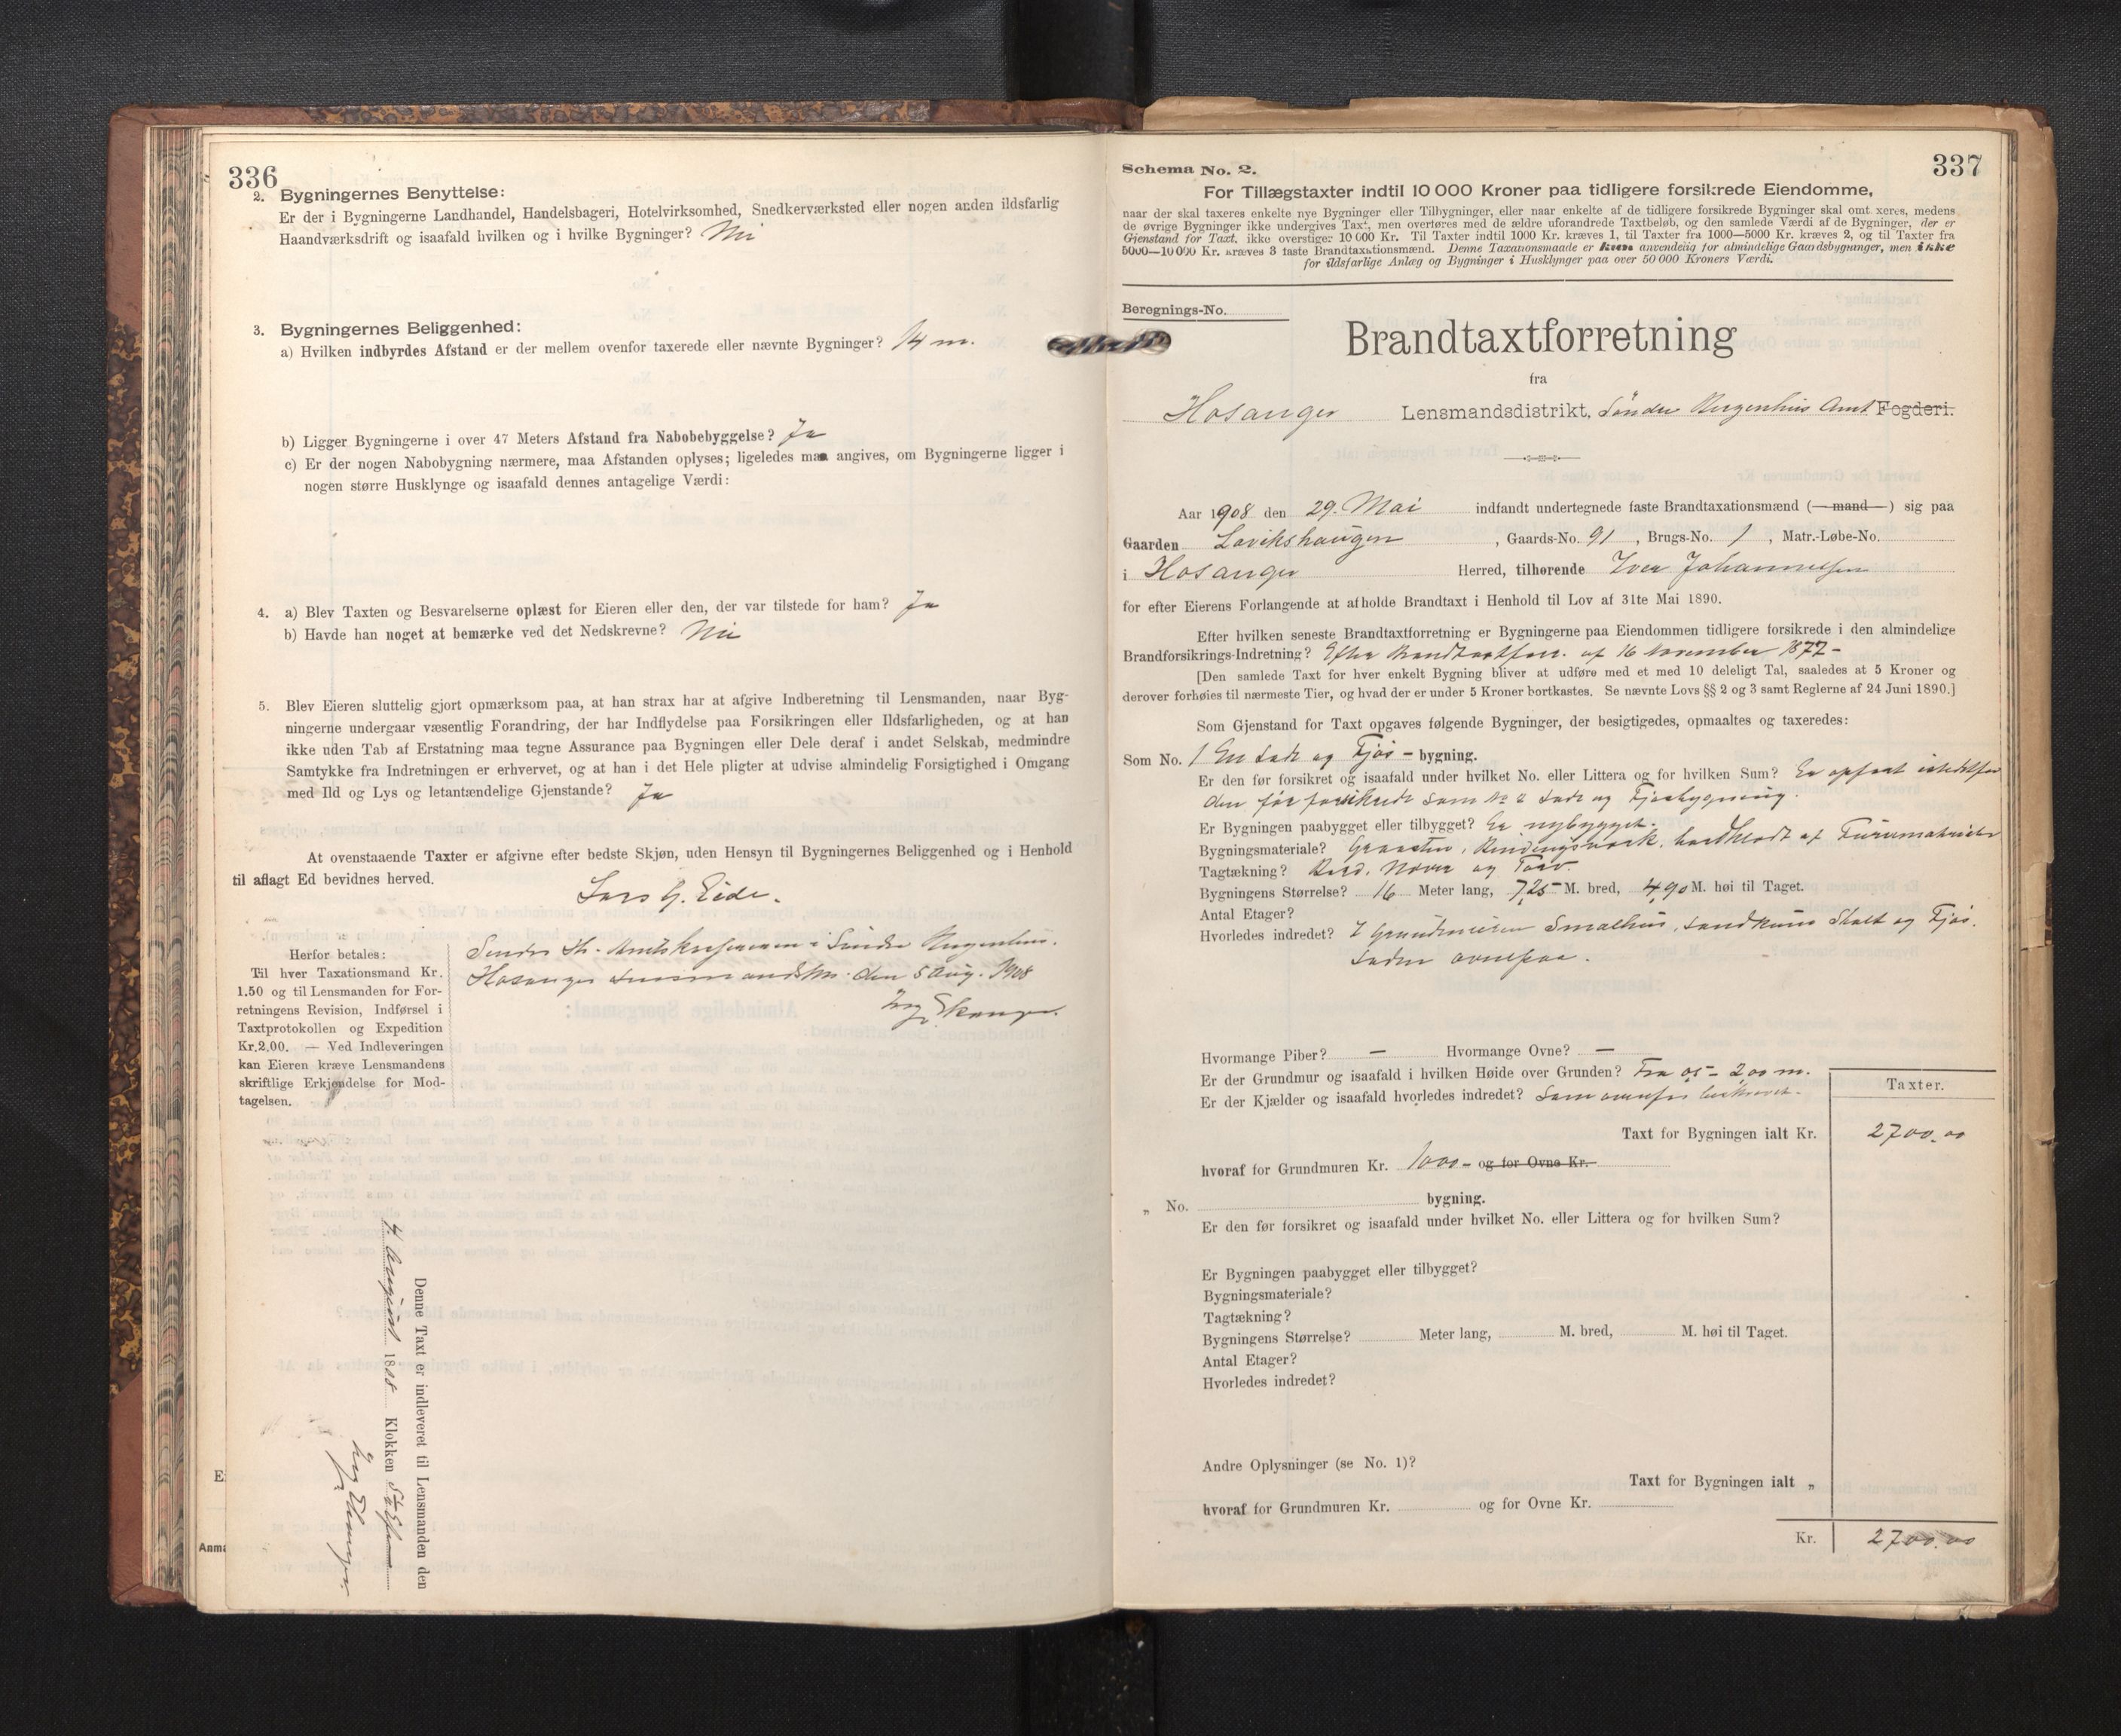 336
2. Bygningernes Benyttelse:
Er der i Bygningerne Landhandel, Handelsbageri, Hotelvirksomhed, Snedkerværksted eller nogen anden ildsfarlig
Haandværksdrift og isaafald hvilken og i hvilke Bygninger? Nei
3. Bygningernes Beliggenhed:
a) Hvilken indbyrdes Afstand er der mellem ovenfor taxerede eller nævnte Bygninger? 14 m.
b) Ligger Bygningerne i over 47 Meters Afstand fra Nabobebyggelse? Ja
c) Er der nogen Nabobygning nærmere, maa Afstanden oplyses; ligeledes maa angives, om Bygningerne ligger i
nogen større Husklynge og isaafald dennes antagelige Værdi:
4. a) Blev Taxten og Besvarelserne oplæst for Eieren eller den, der var tilstede for ham? Ja
b) Havde han noget at bemærke ved det Nedskrevne? Nei
5. Blev Eieren sluttelig gjort opmærksom paa, at han strax har at afgive Indberetning til Lensmanden, naar Byg-
ningerne undergaar væsentlig Forandring, der har Indflydelse paa Forsikringen eller Ildsfarligheden, og at han
ikke uden Tab af Erstatning maa tegne Assurance paa Bygningen eller Dele deraf i andet Selskab, medmindre
Samtykke fra Indretningen er erhvervet, og at han i det Hele pligter at udvise almindelig Forsigtighed i Omgang
med Ild og Lys og letantændelige Gjenstande? Ja
At ovenstaaende Taxter er afgivne efter bedste Skjøn, uden Hensyn til Bygningernes Beliggenhed og i Henhold
til aflagt Ed bevidnes herved.
Lars G. Eide.
Sendes Hr. Amtskassereren i Søndre Bergenhus.
Hosanger Lensmandsktr. den 5 Aug. 1908
Herfor betales:
Til hver Taxationsmand Kr.
1.50 og til Lensmanden for For-
retningens Revision, Indførsel i
Taxtprotokollen og Expedition
Kr. 2.00. — Ved Indleveringen
kan Eieren kræve Lensmandens
skriftlige Erkjendelse for Mod-
tagelsen.
Denne Taxt er indleveret til Lensmanden den
4. August 1808 Klokken
E
Anma
337
Schema No. 2.
For Tillægstaxter indtil 10 000 Kroner paa tidligere forsikrede Eiendomme,
naar der skal taxeres enkelte nye Bygninger eller Tilbygninger, eller naar enkelte af de tidligere forsikrede Bygninger skal omt xeres, medens
de øvrige Bygninger ikke undergives Taxt, men overføres med de ældre uforandrede Taxtbeløb, og den samlede Værdi af de Bygninger, der er
Gjenstand for Taxt, ikke overstiger 10 000 Kr. Til Taxter indtil 1000 Kr. kræves 1, til Taxter fra 1000—5000 Kr. kræves 2, og til Taxter fra
5000—10 000 Kr. kræves 3 faste Brandtaxationsmænd. Denne Taxationsmaade er kun anvendelig for almindelige Gaardsbygninger, men ikke
for ildsfarlige Anlæg og Bygninger i Husklynger paa over 50 000 Kroners Værdi.
Beregnings-No.
Brandtaxtforretning
fra
Hosanger Lensmandsdistrikt, Søndre Bergenhus Amt Fogderi.
Aar 1908 den 29. Mai indfandt undertegnede faste Brandtaxationsmænd (mand) sig paa
Gaarden Lavikshaugen, Gaards-No. 91, Brugs-No. 1, Matr.-Løbe-No.
i Hosanger Herred, tilhørende Iver Johannessen
for efter Eierens Forlangende at afholde Brandtaxt i Henhold til Lov af 31te Mai 1890.
Efter hvilken seneste Brandtaxtforretning er Bygningerne paa Eiendommen tidligere forsikrede i den almindelige
Brandforsikrings-Indretning? Efter Brandtaxtforr. af 16 November 1877-
[Den samlede Taxt for hver enkelt Bygning bliver at udføre med et med 10 deleligt Tal, saaledes at 5 Kroner og
derover forhøies til nærmeste Tier, og hvad der er under 5 Kroner bortkastes. Se nævnte Lovs §§ 2 og 3 samt Reglerne af 24 Juni 1890.]
Som Gjenstand for Taxt opgaves følgende Bygninger, der besigtigedes, opmaaltes og taxeredes:
Som No. 1 En Lade og Fjøs - bygning.
Er den før forsikret og isaafald under hvilket No. eller Littera og for hvilken Sum? Er opført istedetfor
den før forsikrede som No 2 Lade og Fjøsbygning.
Er Bygningen paabygget eller tilbygget? Er nybygget.
Bygningsmateriale? Graasten, Bindingsværk, bordklædt af Furumaterialer
Tagtækning? Bord, Næver og Torv.
Bygningens Størrelse? 16 Meter lang, 7,25 M. bred, 4,90 M. høi til Taget.
Antal Etager?
Hvorledes indredet? I Grundmuren Smalhus, Landkum Stald og Fjøs.
Laden ovenpaa.
Hvormange Piber? — Hvormange Ovne? —
Er der Grundmur og isaafald i hvilken Høide over Grunden? Fra 05- 2,00 m.
Er der Kjælder og isaafald hvorledes indredet? Som ovenfor beskrevet.
Taxter.
Taxt for Bygningen ialt Kr. 2700.00
hvoraf for Grundmuren Kr. 1000- og for Ovne Kr.
„ No. bygning.
Er den før forsikret og isaafald under hvilket No. eller Littera og for hvilken Sum?
Er Bygningen paabygget eller tilbygget?
Bygningsmateriale?
Tagtækning?
Bygningens Størrelse? Meter lang, M. bred, M. høi til Taget.
Antal Etager?
Hvorledes indredet?
Andre Oplysninger (se No. 1)?
Taxt for Bygningen ialt „
hvoraf for Grundmuren Kr. og for Ovne Kr.
Kr. 2700.00